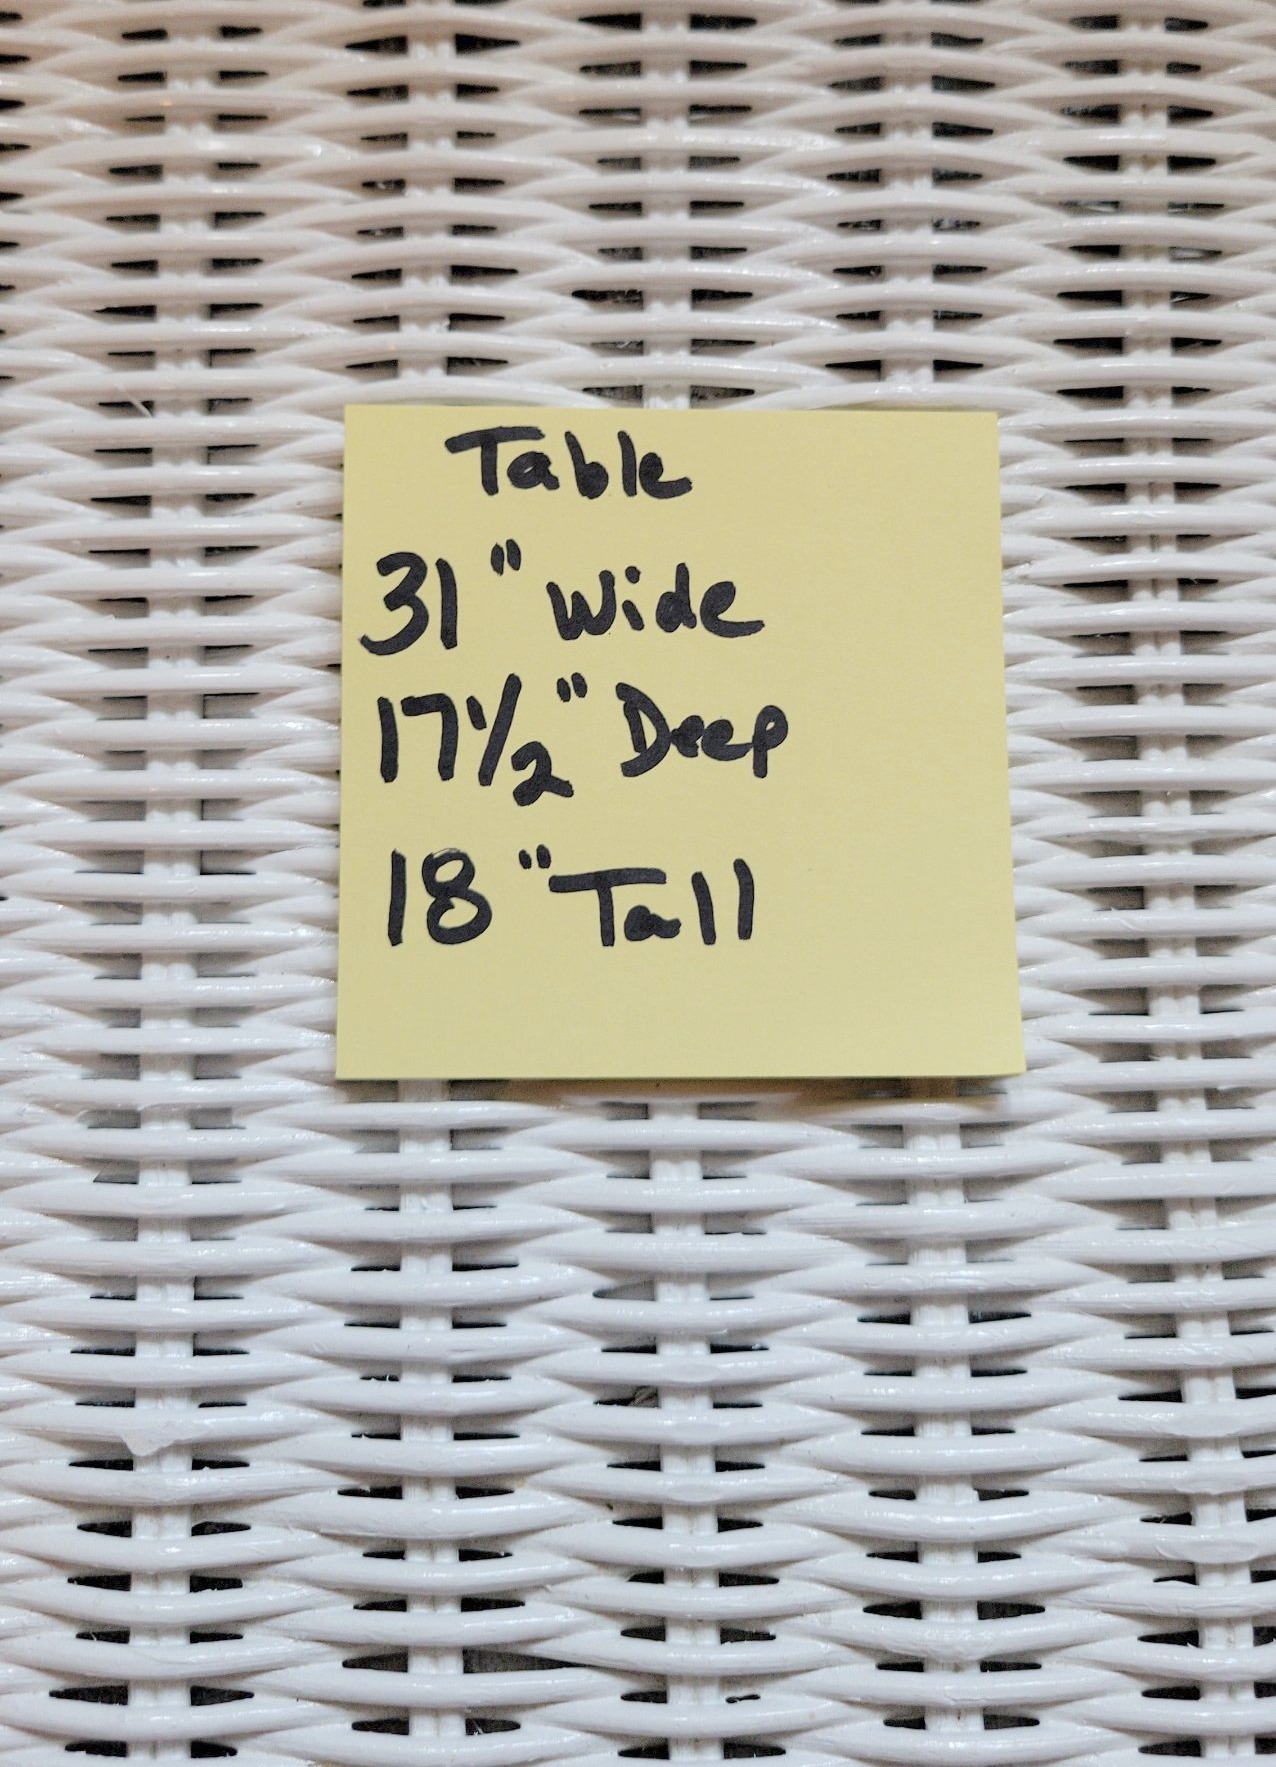 Table
31" Wide
17 1/2" Deep
18" Tall